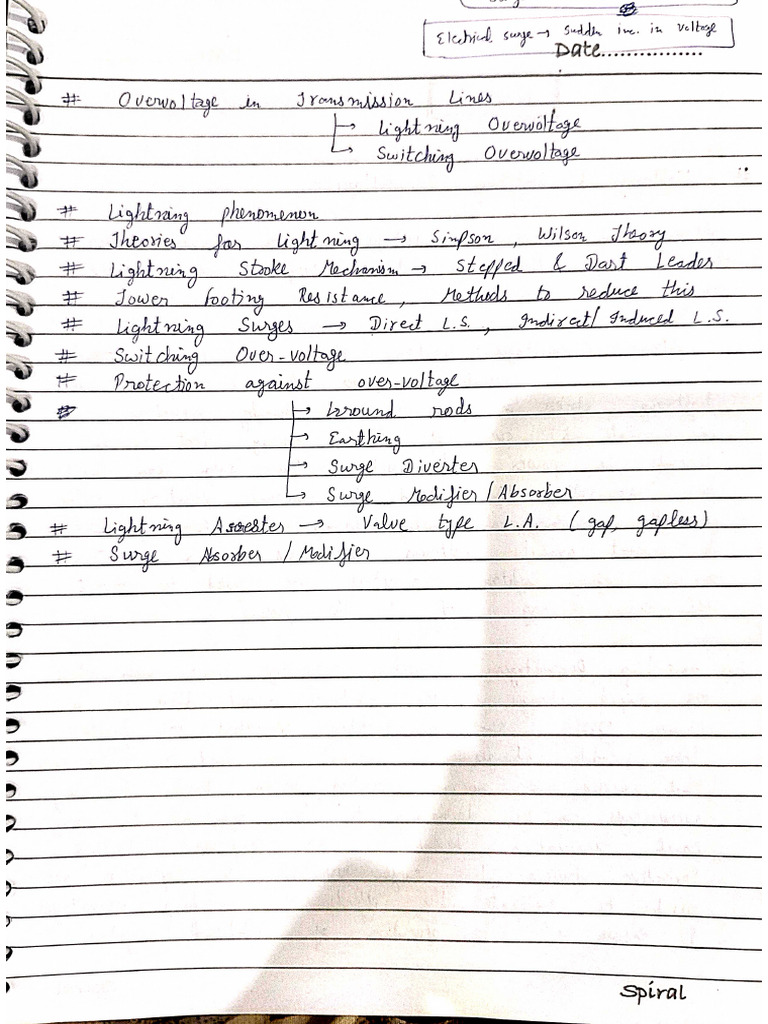 Electrical surge → sudden inc. in voltage
Date................
# Overvoltage in Transmission Lines
→ Lightning Overvoltage
→ Switching Overvoltage
# Lightning phenomenon
# Theories for lightning → Simpson, Wilson Theory
# Lightning Stroke Mechanism → Stepped & Dart Leader
# Tower footing Resistance, Methods to reduce this
# Lightning Surges → Direct L.S., Indirect/Induced L.S.
# Switching Over-voltage
# Protection against over-voltage
→ Ground rods
→ Earthing
→ Surge Diverter
→ Surge Modifier/Absorber
# Lightning Arrester → Value type L.A. (gap, gapless)
# Surge Absorber / Modifier
Spiral